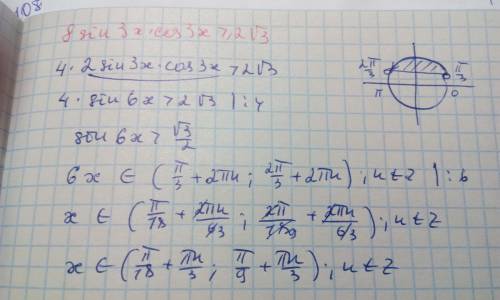 108
8 sin 3x · cos 3x > 2√3
4 · 2 sin 3x · cos 3x > 2√3
4 · sin 6x > 2√3 | : 4
sin 6x > √3/2
6x ∈ (π/3 + 2πn ; 2π/3 + 2πn) ; n ∈ Z | : 6
x ∈ (π/18 + 2πn/63 ; 2π/189 + 2πn/63) ; n ∈ Z
x ∈ (π/18 + πn/3 ; π/9 + πn/3) ; n ∈ Z
2π/3 π/3
π 0